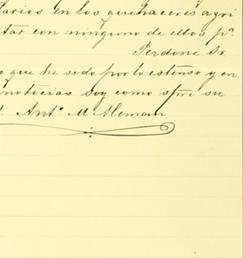 tarios en los quehaceres agri
tar con ninguno de ellos pa
Perdone Sr.
o que he sido por lo estenso y en
noticias soy como spre su
Anto. M. Aleman